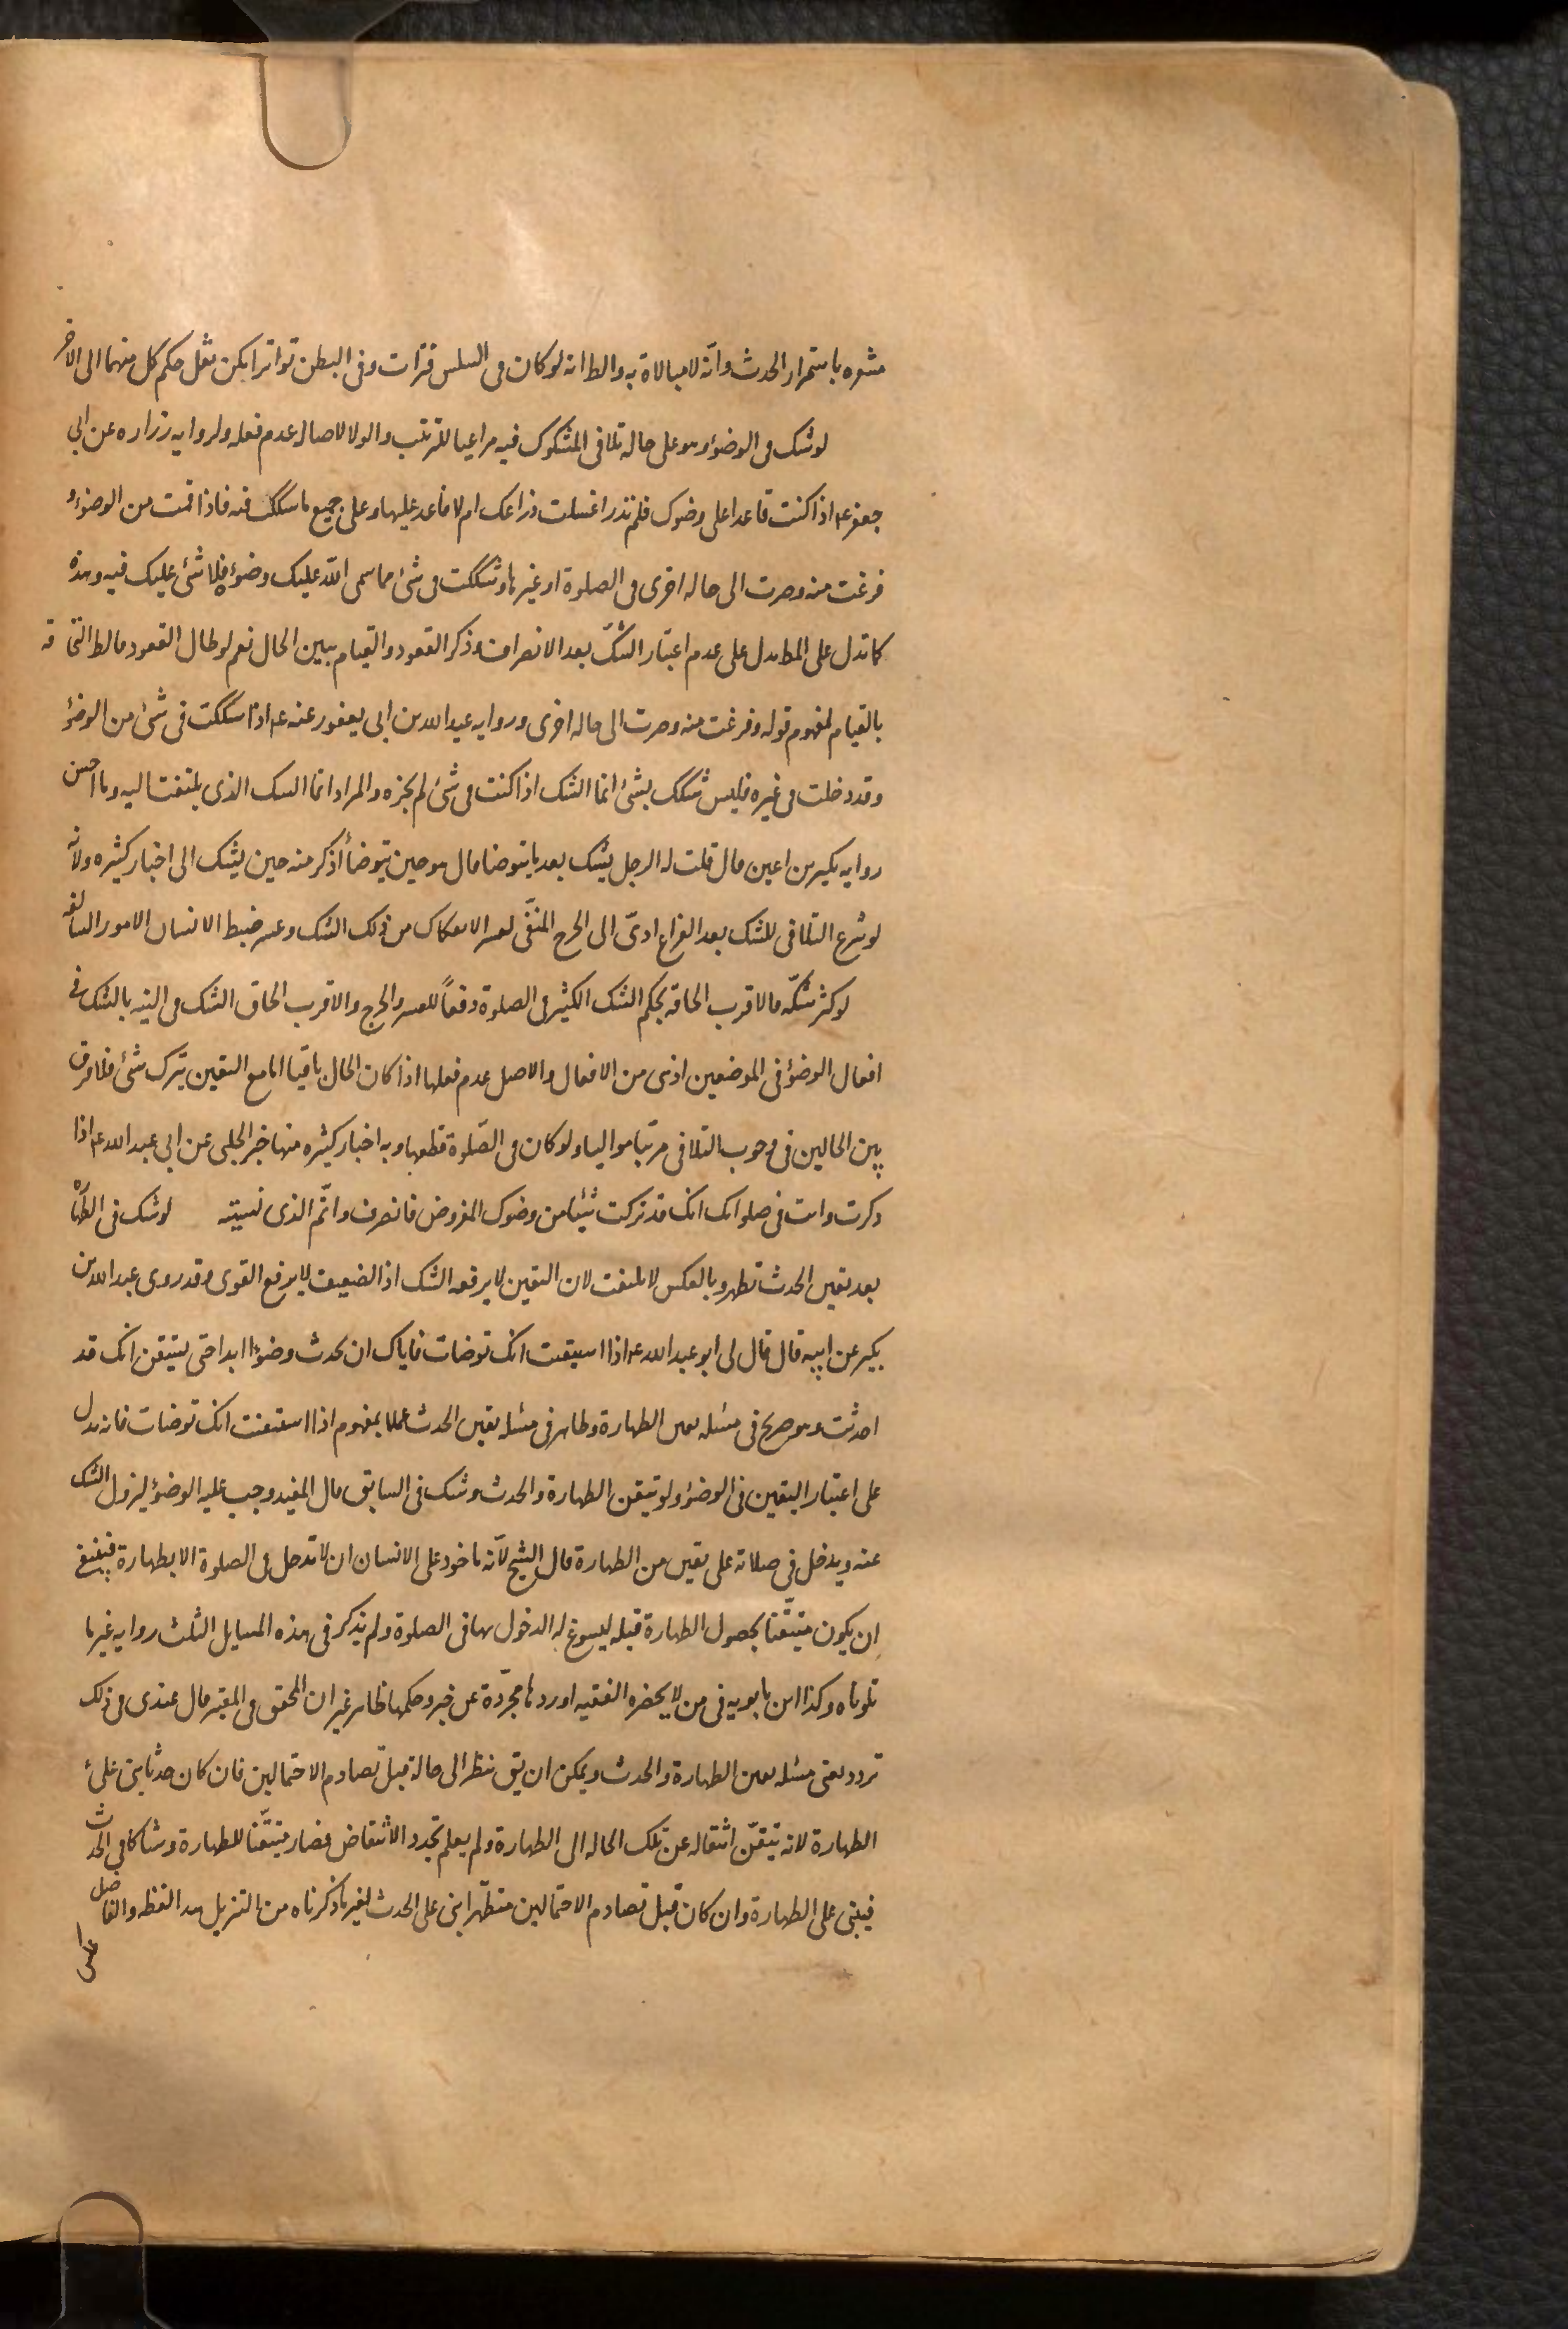 مشعره باستمرار الحدث وانّه لا مبالاة به والظ انه لو كان فى السلس فترات وفى البطن تواترا امكن نقل حكم كل منهما الى الاخر
لو شك فى الوضوء وهو على حاله تلافى المشكوك فيه مراعيا للترتيب والولا لاصاله عدم فعله ولروايه زراره عن ابى
جعفر ع اذا كنت قاعدا على وضوك فلم تدر اغسلت ذراعك ام لا فاعد عليها وعلى جميع ما شككت فيه فاذا قمت من الوضوء و
فرغت منه وصرت الى حاله اخرى فى الصلوة او غيرها وشككت فى شئ مما سمى الله عليك وضوءه فلا شئ عليك فيه وهذه
كما تدل على المط تدل على عدم اعتبار الشكّ بعد الانصراف وذكر القعود والقيام يبين الحال نعم لو طال القعود فالظ التحاقه
بالقيام لمفهوم قوله وفرغت منه وصرت الى حاله اخرى وروايه عبد الله بن ابى يعفور عنه ع اذا شككت فى شئ من الوضؤ
وقد دخلت فى غيره فليس شكك بشئ انما الشك اذا كنت فى شئ لم تجزه والمراد انما الشك الذى يلتفت اليه وما احسن
روايه بكير بن اعين قال قلت له الرجل يشك بعد ما يتوضا قال هو حين يتوضأ أذكر منه حين يشك الى اخبار كثيره ولانه
لو شرع التلافى للشك بعد الفراغ ادىّ الى الحرج المنفّى لعسر الانفكاك من ذلك الشك وعسر ضبط الانسان الامور السالفه
لو كثر شكّه فالاقرب الحاقه بحكم الشك الكثير فى الصلوة دفعاً للعسر والحرج والاقرب الحاق الشك فى النيه بالشك فى
افعال الوضؤ فى الموضعين اذ هى من الافعال والاصل عدم فعلها اذا كان الحال باقيا اما مع اليقين بترك شئ فلا فرق
بين الحالين فى وجوب التلافى مرتبا مواليا ولو كان فى الصّلوة قطعها وبه اخبار كثيره منها خبر الحلبى عن ابى عبد الله ع اذا
ذكرت وانت فى صلواتك انك قد تركت شيئا من وضوك المفروض فانصرف واتّم الذى نسيته لو شك فى الطهارة
بعد يقين الحدث تطهر وبالعكس لا يلتفت لان اليقين لا يرفعه الشك اذ الضعيف لا يرفع القوى وقد روى عبد الله بن
بكير عن ابيه قال قال لى ابو عبد الله ع اذا استيقنت انك توضات فاياك ان تحدث وضوءا ابدا حتى تستيقن انك قد
احدثت وهو صريح فى مسئله يقين الطهارة وظاهر فى مسئله يقين الحدث عملا بمفهوم اذا استيقنت انك توضات فانه يدل
على اعتبار اليقين فى الوضؤ ولو تيقن الطهارة والحدث وشك فى السابق قال المفيد وجب عليه الوضؤ ليزول الشك
عنه ويدخل فى صلاته على يقين من الطهارة قال الشيخ لأنه ماخوذ على الانسان ان لا يدخل فى الصلوة الا بطهارة فينبغى
ان يكون متيّقنا بحصول الطهارة قبله ليسوغ له الدخول بها فى الصلوة ولم يذكر فى هذه المسايل الثلث روايه غير ما
تلوناه وكذا ابن بابويه فى من لا يحضره الفقيه اوردها مجرّدة عن خبر وحكمها ظاهر غير ان المحقق فى المعتبر قال عندى فى ذلك
تردد يعنى مسئله يقين الطهارة والحدث ويمكن ان يق ينظر الى حاله قبل تصادم الاحتمالين فان كان حدثا بنى على
الطهارة لانه تيقّن انتقاله عن تلك الحاله الى الطهارة ولم يعلم تجدد الانتقاض فصار متيّقنا للطهارة وشاكا فى الحدث
فيبنى على الطهارة وان كان قبل تصادم الاحتمالين متطهّرا بنى على الحدث لغير ما ذكرناه من التنزيل هذا لفظه والفاضل